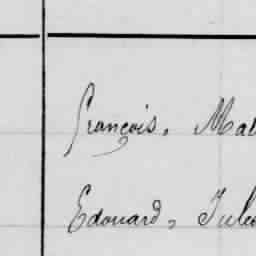 François, Mat
Edouard, Jules